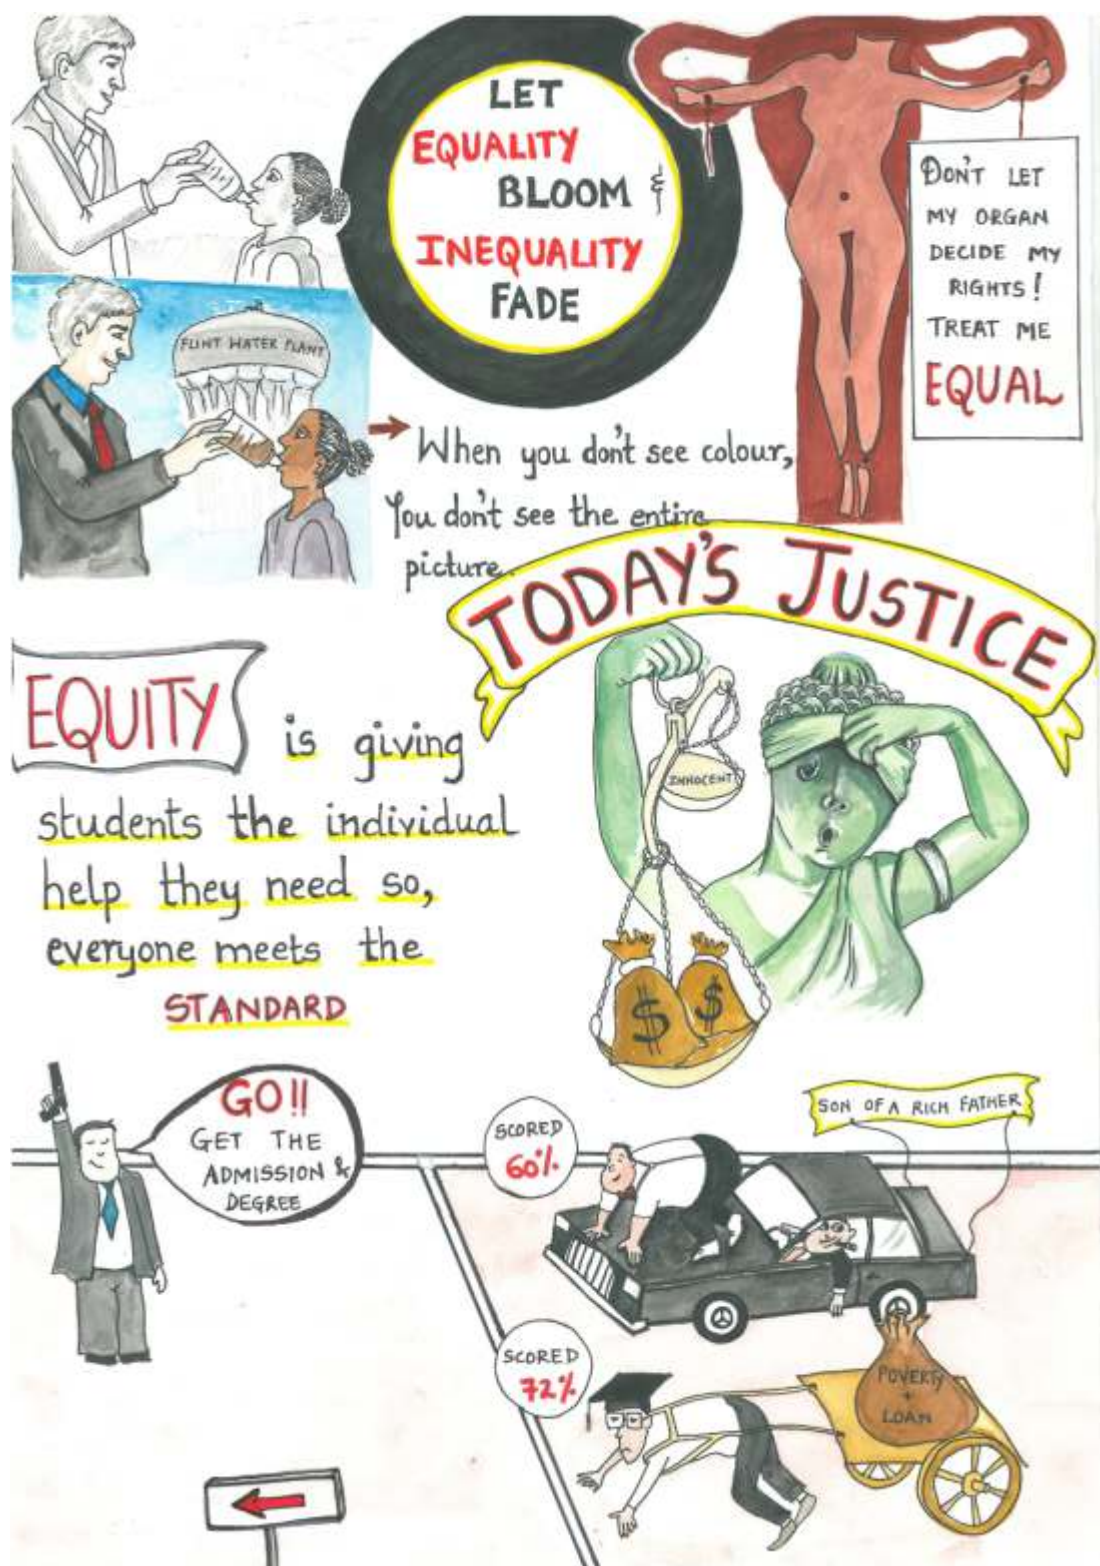 LET
EQUALITY
BLOOM &
INEQUALITY
FADE
DON'T LET
MY ORGAN
DECIDE MY
RIGHTS!
TREAT ME
EQUAL
FLINT WATER PLANT
When you don't see colour,
You don't see the entire
picture.
TODAY'S JUSTICE
INNOCENT
$ $
EQUITY
is giving
students the individual
help they need so,
everyone meets the
STANDARD
GO!!
GET THE
ADMISSION &
DEGREE
SON OF A RICH FATHER
SCORED
60%
SCORED
72%
POVERTY
+
LOAN